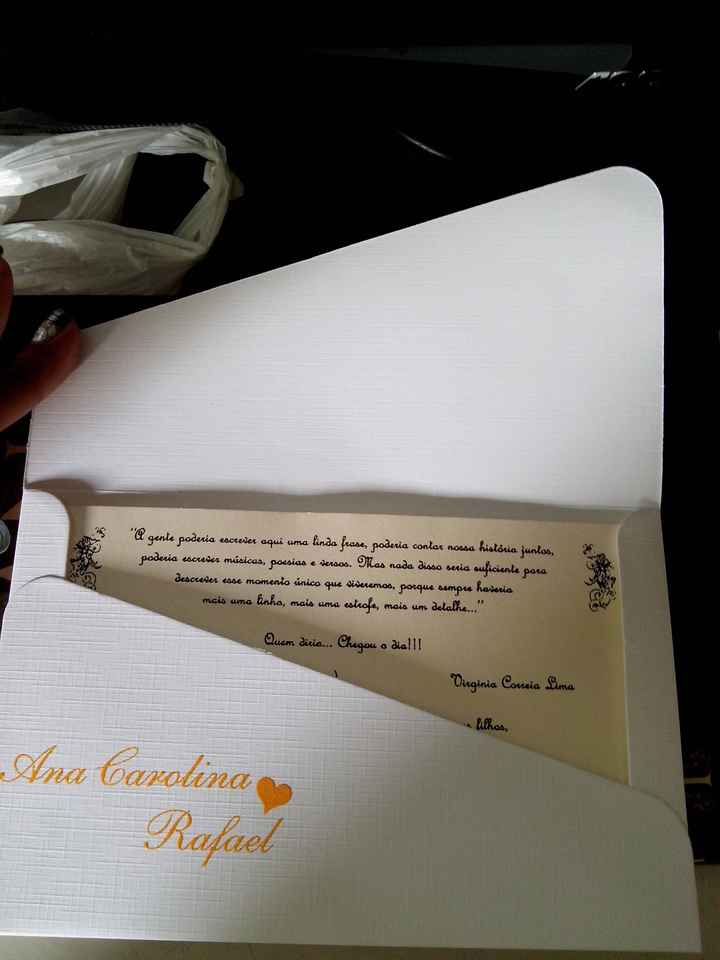 "A gente poderia escrever aqui uma linda frase, poderia contar nossa história juntos,
poderia escrever músicas, poesias e versos. Mas nada disso seria suficiente para
descrever esse momento único que viveremos, porque sempre haveria
mais uma linha, mais uma estrofe, mais um detalhe..."
Quem diria... Chegou o dia!!!
Virginia Correia Lima
filhos,
Ana Carolina
Rafael